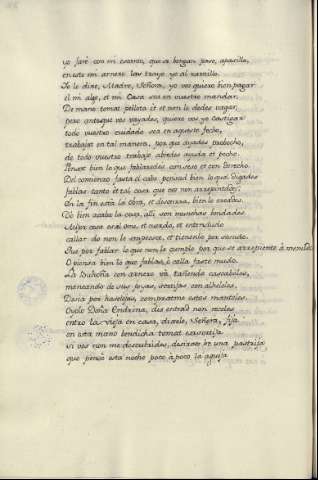 yo faré con mi escanto, que se bengan paso, apasillo,
en este mi arnero los trayo yo al zarzillo.
Yo le dixe, Madre, Señora, yo vos quiero bien pagar
el mi algo, et mi Casa sea en vuestro mandar.
De mano tomat pellote ét et non le dedes vagar,
pero antes que vos vayades, quiero vos yo castigar
todo vuestro cuidado sea en aqueste fecho,
trabajat en tal manera, por que ayades probecho,
de todo vuestro trabajo abredes ayuda et pecho.
Pensat bien lo que fablaredes con seso et con derecho.
Del comienzo fasta el cabo pensad bien lo que digades
fablad tanto et tal cosa que vos non arrepintades
En la fin está la obra, et desonrra, bien lo creades.
Dó bien acaba la cosa, allí son muchas bondades
Mejor cosa es al ome, et cuerdo, et entendudo
callar do non le empresce, et tienenlo por sesudo.
Que por fablar lo que non le cumple por que se arrepiente á menudo
O piensa bien lo que fablas, ó calla faste mudo.
La Buhoña con arnero vá tañendo cascabeles,
meneando de sus joyas, sortijas con alheleles.
Dasia por haselejas, compratme estos manteles.
Oyólo Doña Endrina, dix entrad non receles
entro la vieja en casa, dixole, Señora, fija
en esta mano bendicha tomat esa sortija
si vos non me descubrides, desirvos he una pastija
que pensé esta noche poco á poco la aguija